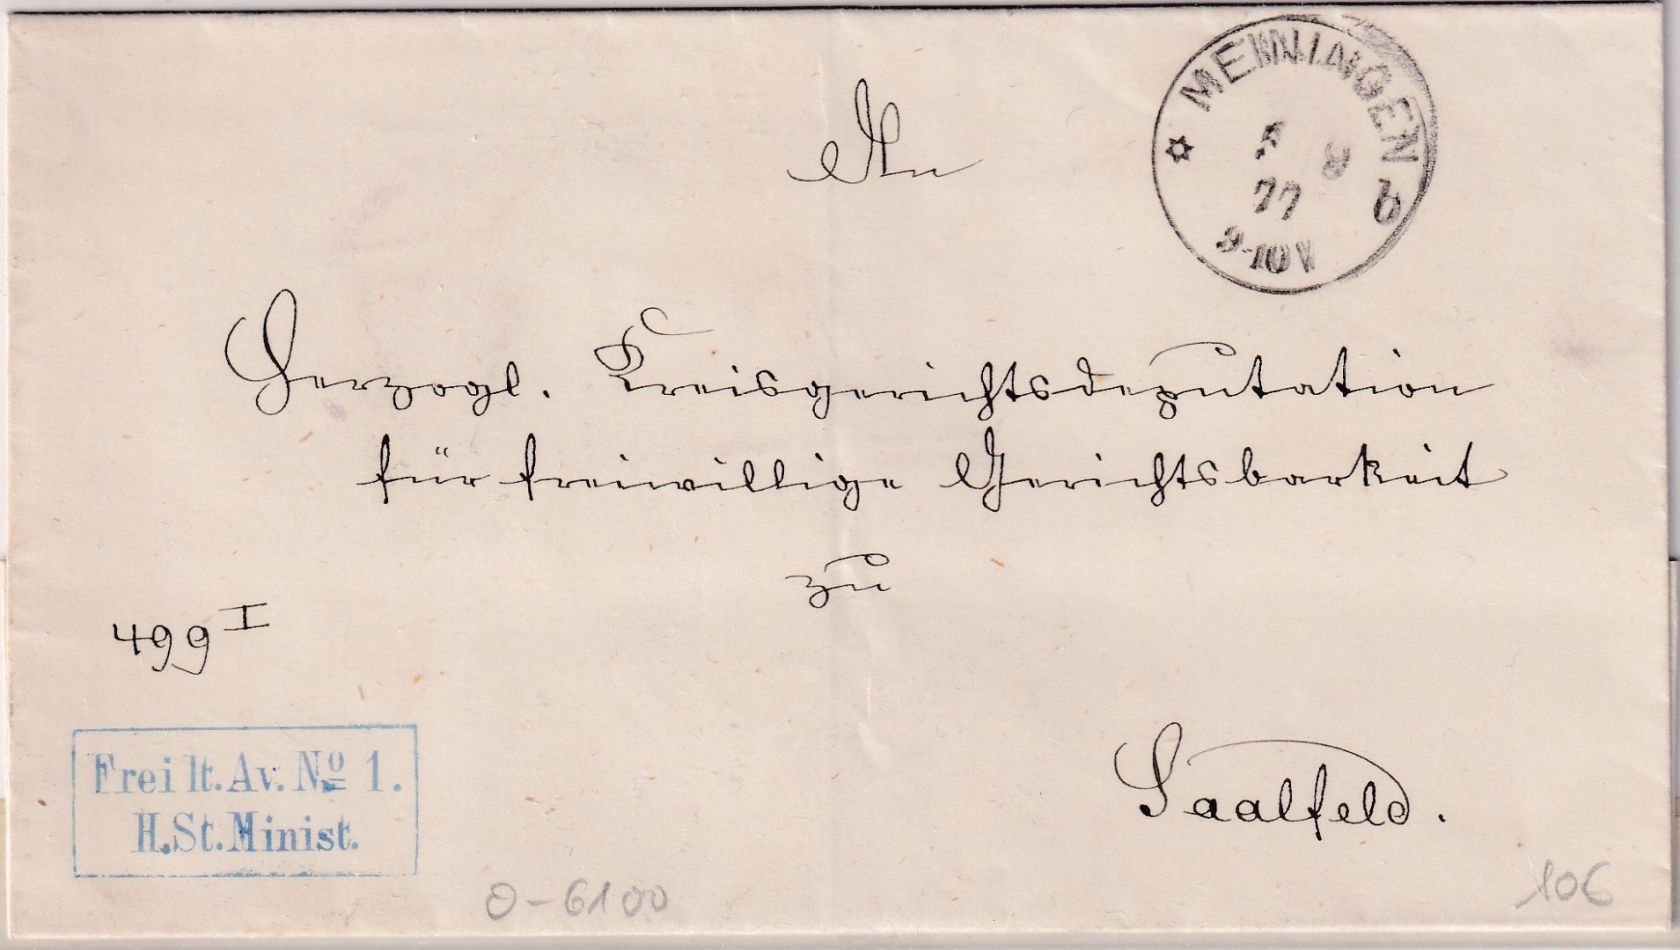 MEININGEN b
8
77
9-10 V
An
Herzogl. Kreisgerichtsdeputation
für freiwillige Gerichtsbarkeit
zu
499 I
Saalfeld.
Frei lt. Av. Nº 1.
H. St. Minist.
O-6100
106